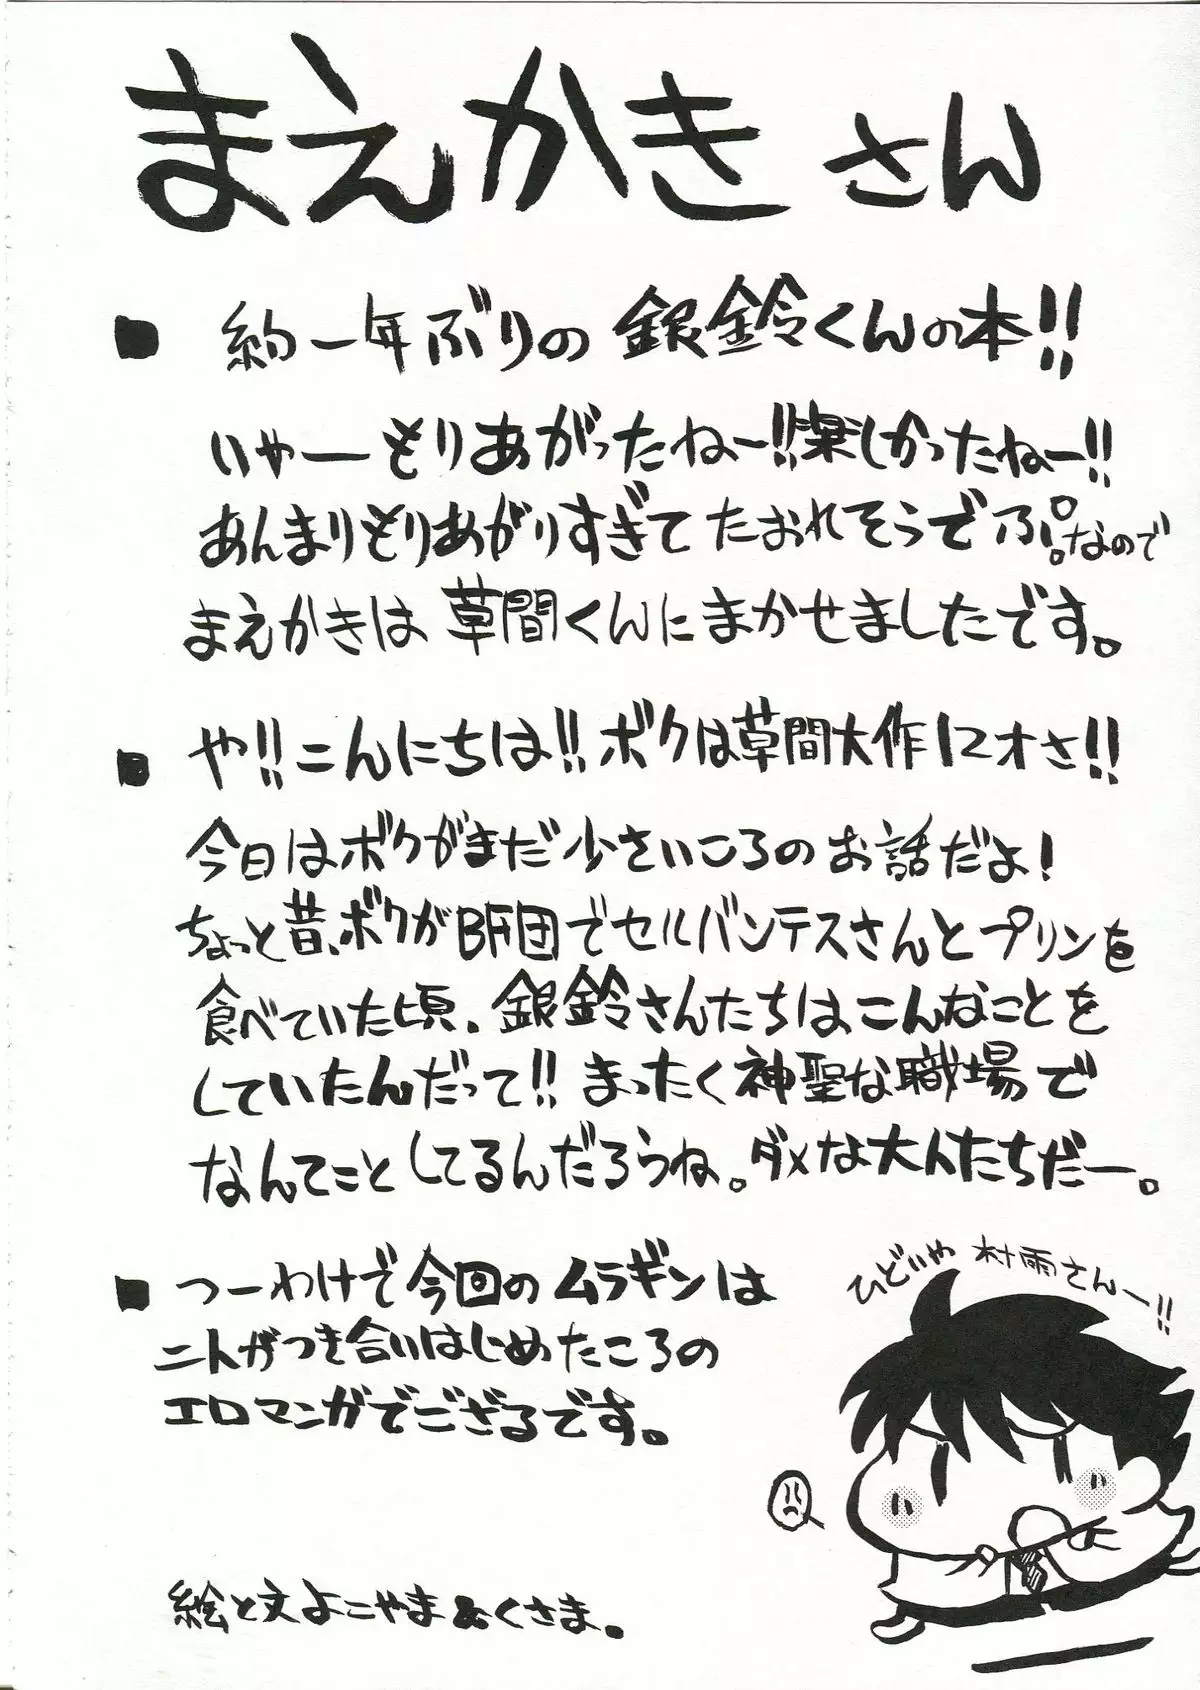 まえかきさん
■ 約一年ぶりの 銀鈴くんの本!!
いやーもりあがったねー!!楽しかったねー!!
あんまりもりあがりすぎて たおれそうでぷ。なので
まえかきは 草間くんにまかせましたです。
■ や!!こんにちは!!ボクは草間大作12才さ!!
今日はボクがまだ少さいころのお話だよ!
ちょっと昔、ボクがBF団でセルバンテスさんとプリンを
食べていた頃、銀鈴さんたちはこんなことを
していたんだって!!まったく神聖な職場で
なんてことしてるんだろうね。ダメな大人たちだー。
■ つーわけで今回のムラギンは
二人がつき合いはじめたころの
エロマンガでござるです。
ひどいや 村雨さんー!!
絵と文よこやま&くさま。